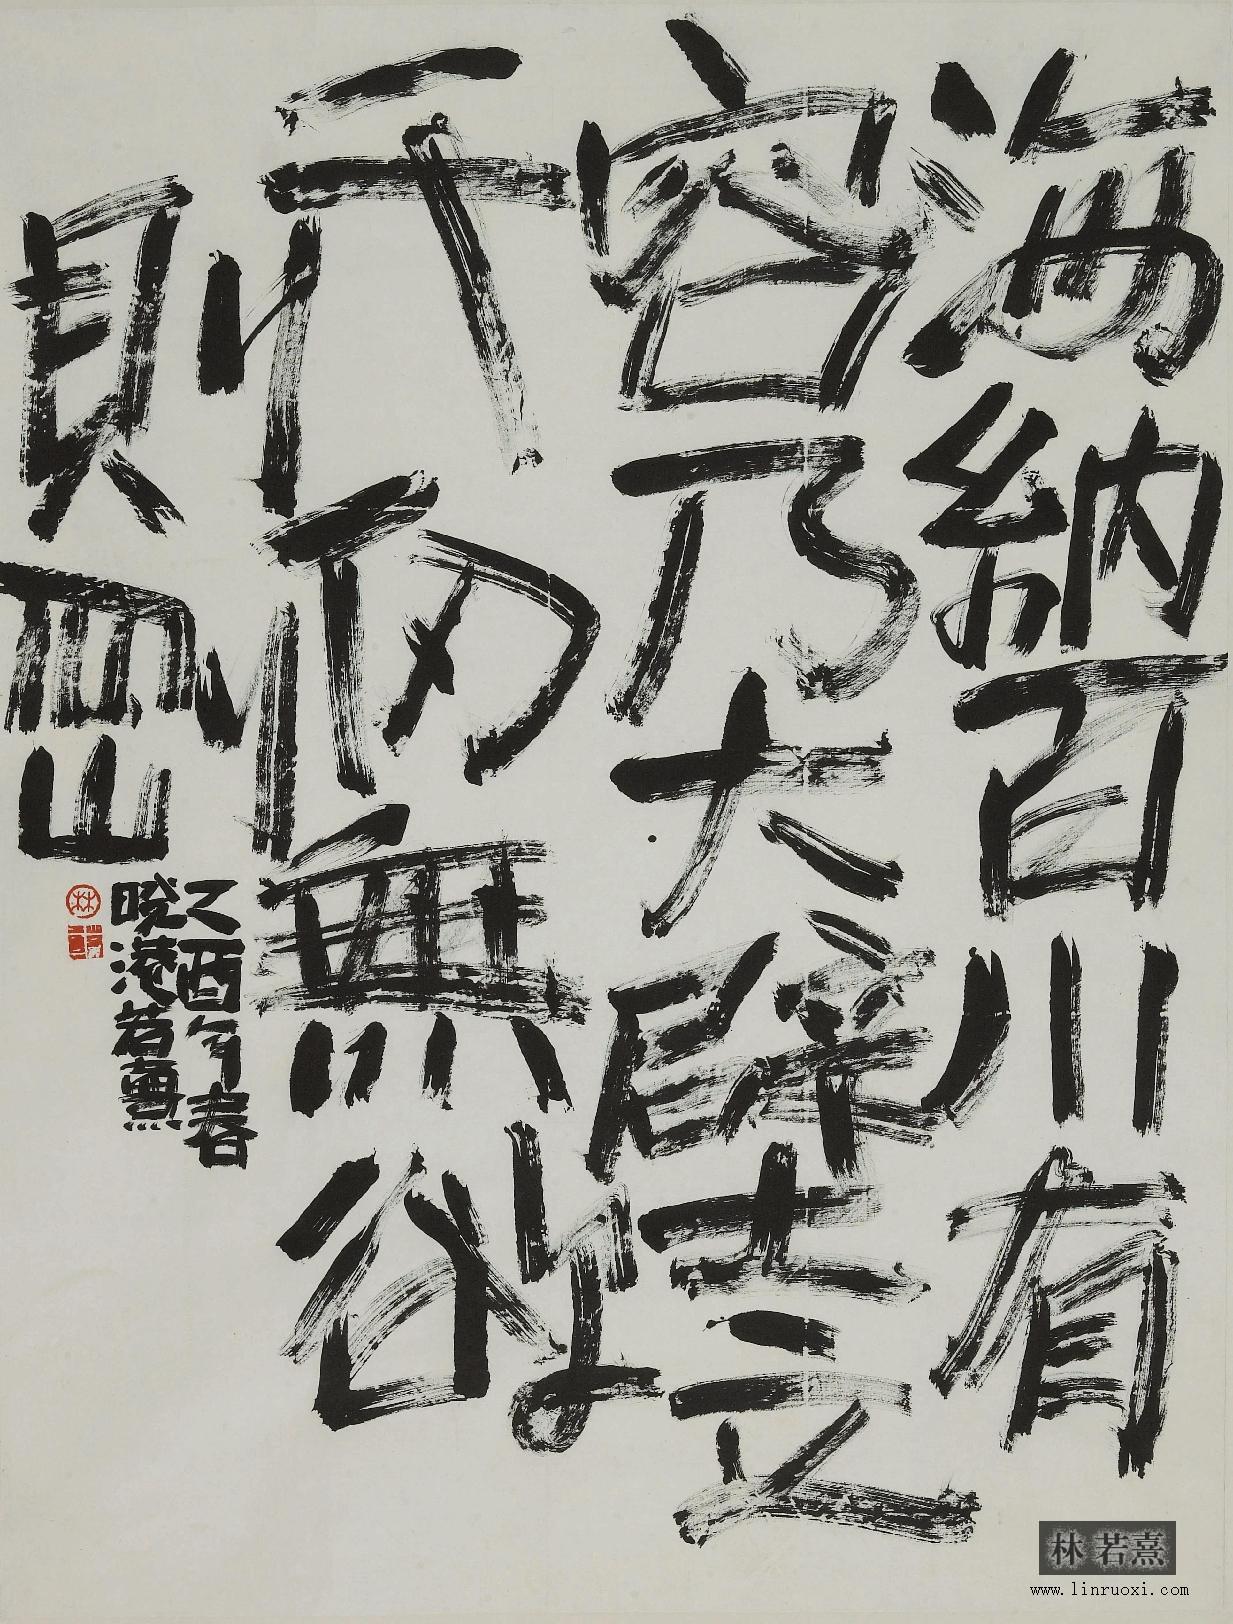 海納百川有
容乃大壁立
千仞無欲
則剛
乙酉年春
晓港若熹
林
林若熹
www.linruoxi.com